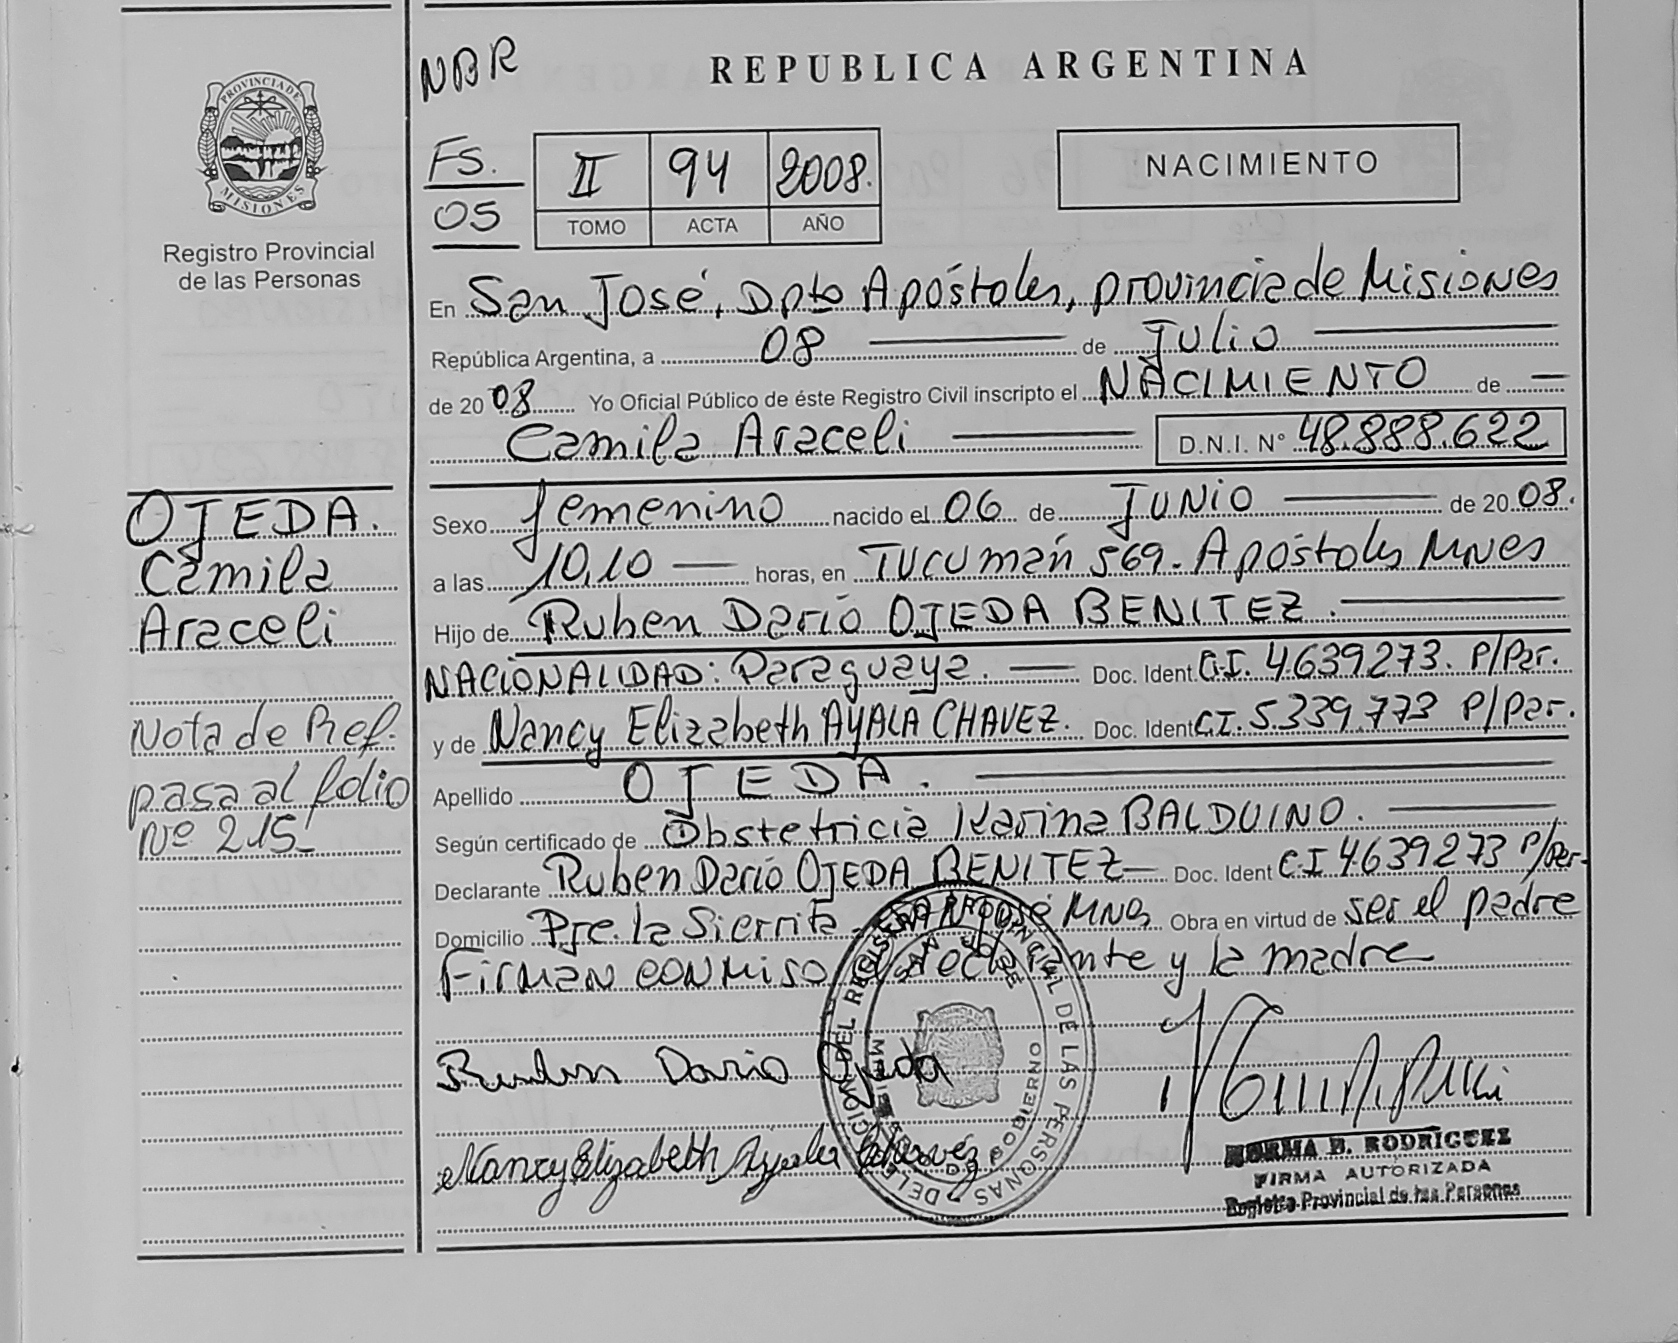 NBR
REPUBLICA ARGENTINA
PROVINCIA DE
MISIONES
Registro Provincial
de las Personas
FS.
05
II 94 2008.
TOMO ACTA AÑO
NACIMIENTO
En San José, Dpto Apóstoles, provincia de Misiones
República Argentina, a 08 de Julio
de 2008 Yo Oficial Público de éste Registro Civil inscripto el NACIMIENTO de
Camila Araceli D.N.I. Nº 48.888.622
OJEDA.
Camila
Araceli
Nota de Ref.
pasa al folio
Nº 215
Sexo femenino nacido el 06 de JUNIO de 2008.
a las 10,10 horas, en TUCUMán 569. Apóstoles MNES
Hijo de Ruben Darío OJEDA BENITEZ.
NACIONALIDAD: Paraguaya. Doc. Ident. C.I. 4639273. P/Par.
y de Nancy Elizabeth AYALA CHAVEZ. Doc. Ident C.I. 5.339.773 P/Par.
Apellido OJEDA.
Según certificado de Obstetricia Karina BALDUINO.
Declarante Ruben Darío OJEDA BENITEZ Doc. Ident C.I 4639273 P/Par.
Domicilio Pje. la Sierrita José MNES Obra en virtud de ser el padre
Firman conmiso declarante y la madre
Ruben Dario Ojeda
Nancy Elizabeth Ayala Chavez
DEL REGISTRO PROVINCIAL DE LAS PERSONAS
SAN JOSE
GOBIERNO
NORMA B. RODRIGUEZ
FIRMA AUTORIZADA
Registro Provincial de las Personas